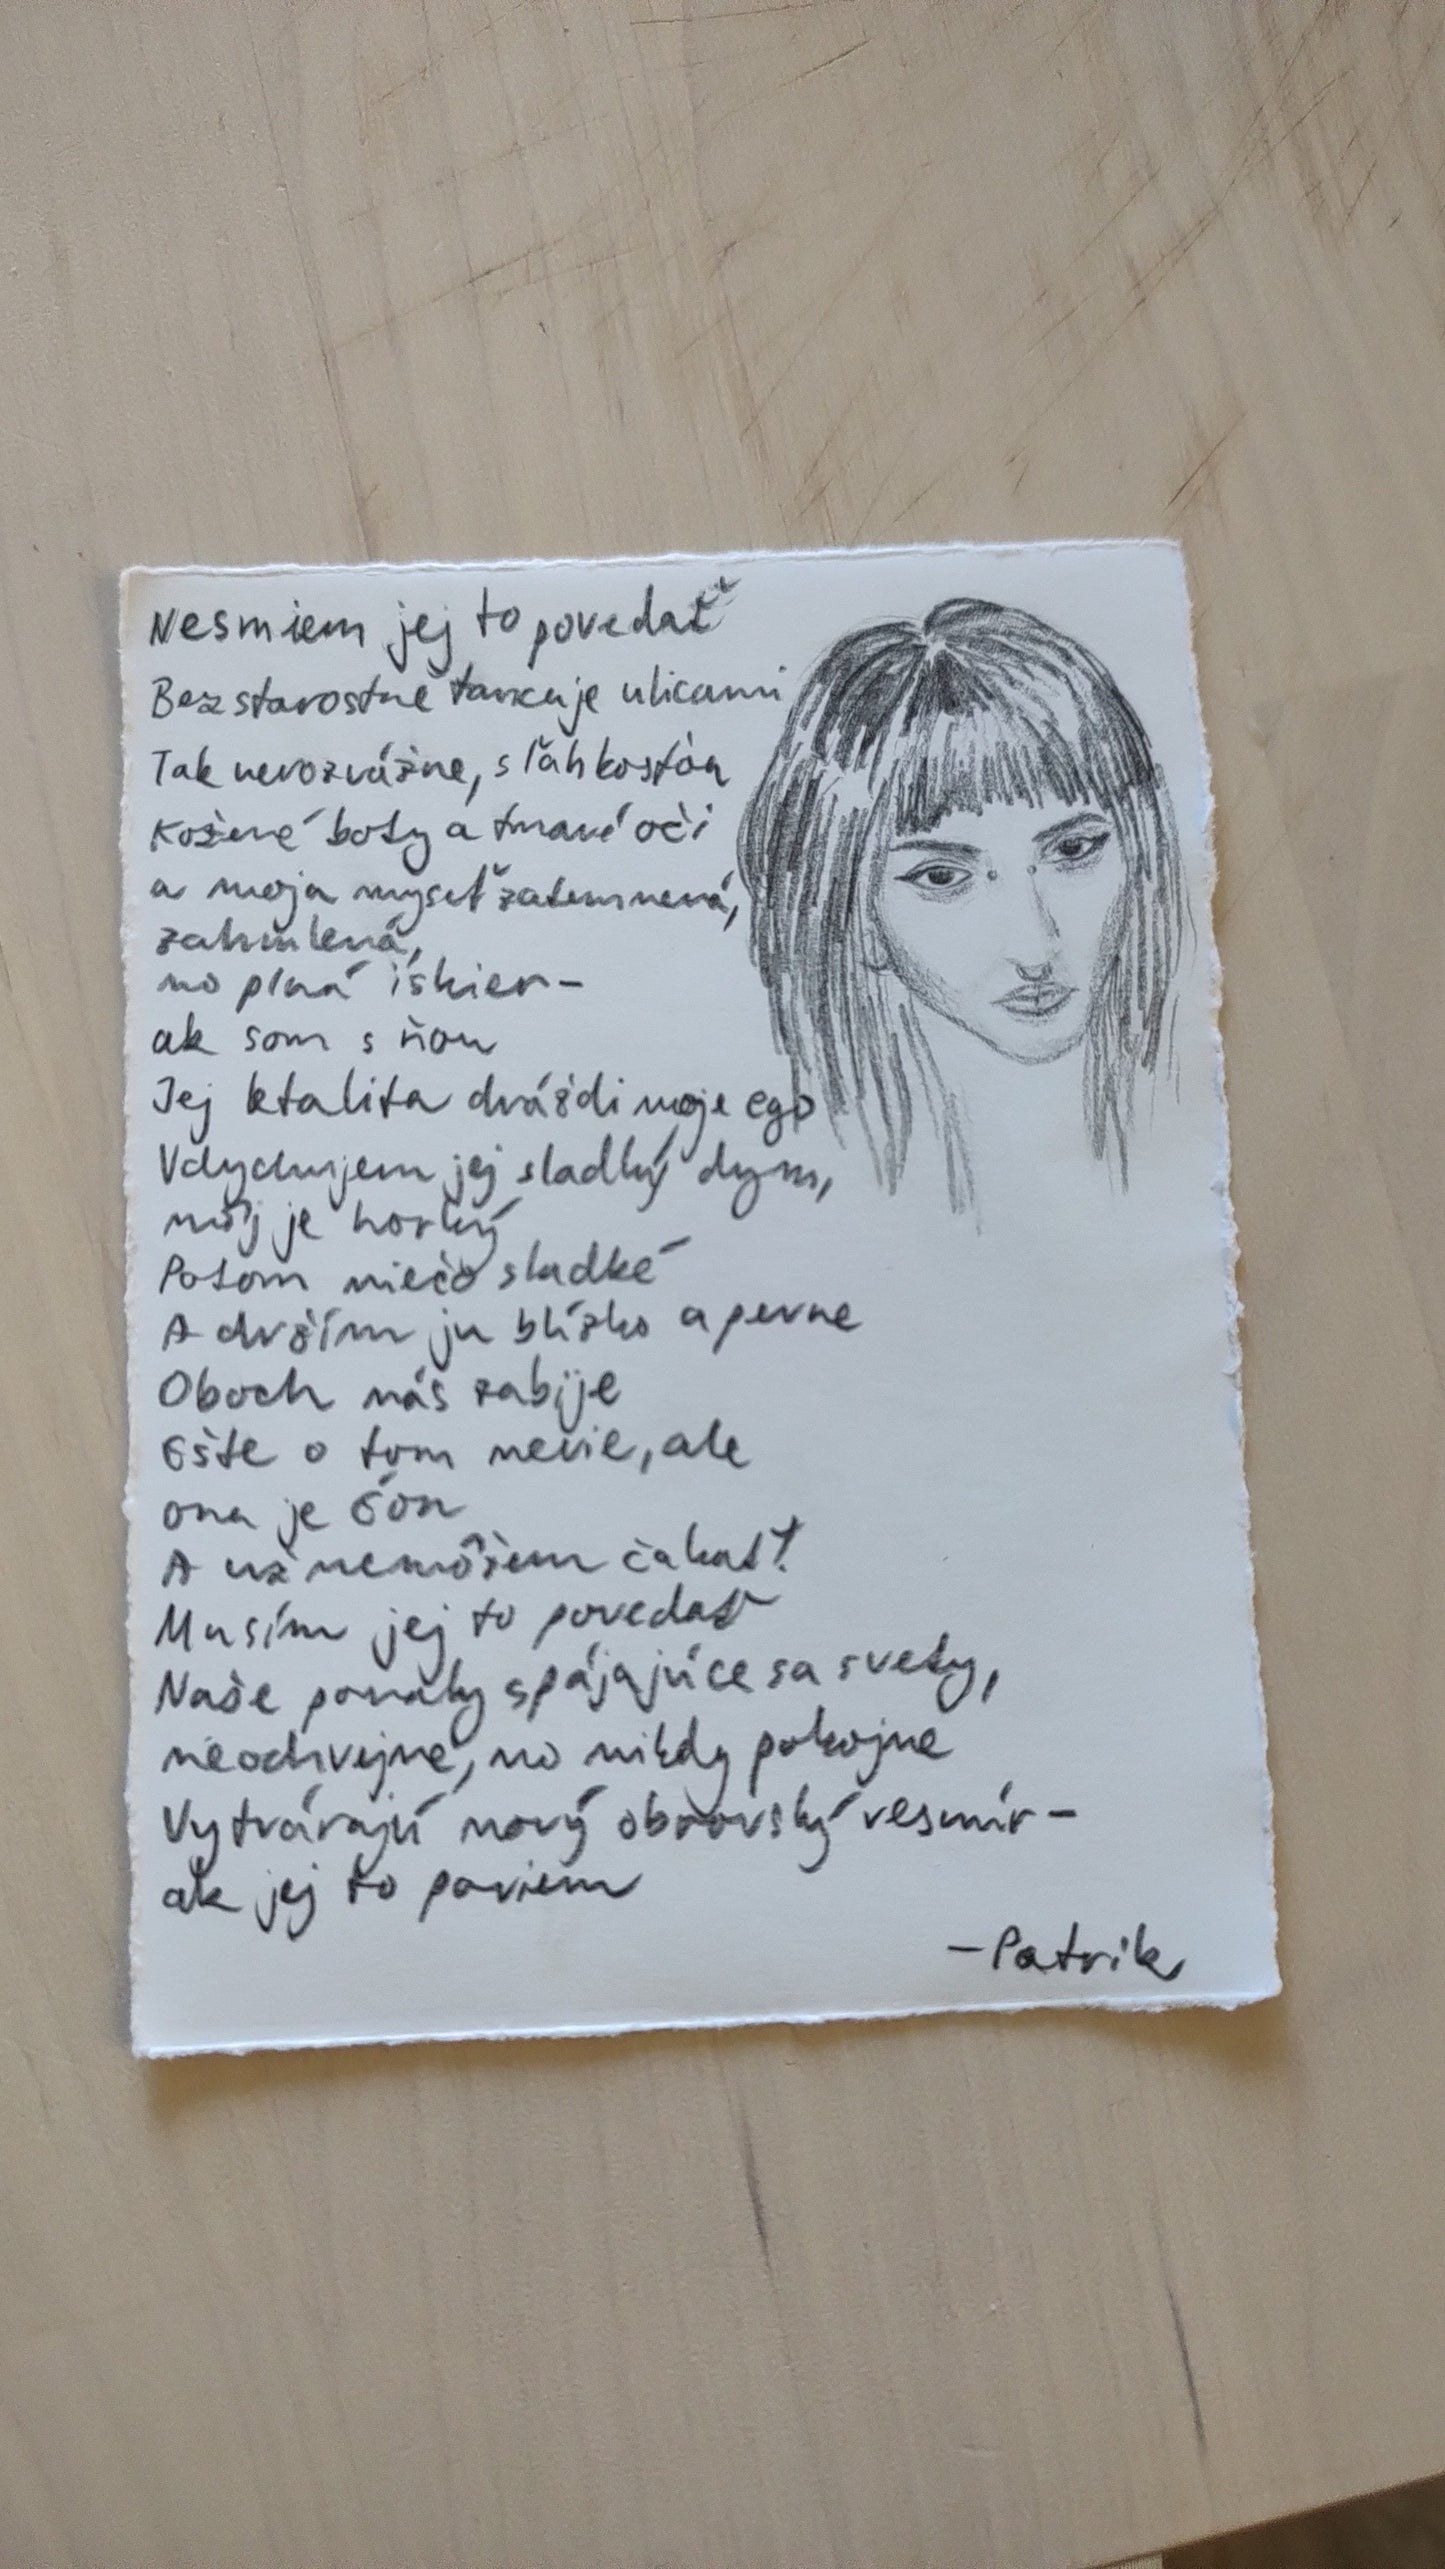 Nesmiem jej to povedať
Bezstarostne tancuje ulicami
Tak nerozvážne, s ľahkosťou
Kožené boty a tmavé oči
a moja myseľ zatemnená,
zahmlená,
no plná iskier-
ak som s ňou
Jej kvalita dráždi moje ego
Vdychujem jej sladký dym,
môj je horký
Potom niečo sladké
A držím ju blízko a pevne
Oboch nás zabije
Ešte o tom nevie, ale
ona je
A už nemôžem čakať!
Musím jej to povedať
Naše povahy spájajúce sa svety,
neochvejne, no nikdy pokojne
Vytvárajú nový obrovský vesmír-
ak jej to poviem
-Patrik